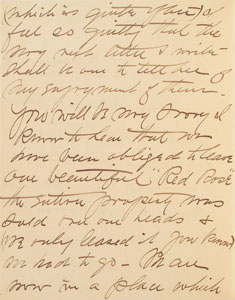 which is quite
ful so quietly that the
very next letter I write
shall be one to tell her of
my enjoyment of them.
You will be very sorry I
know to hear that we
have been obliged to leave
our beautiful "Red Rose"
the entire property was
sold over our heads &
we only leased it you know
we had to go - We are
now in a place which